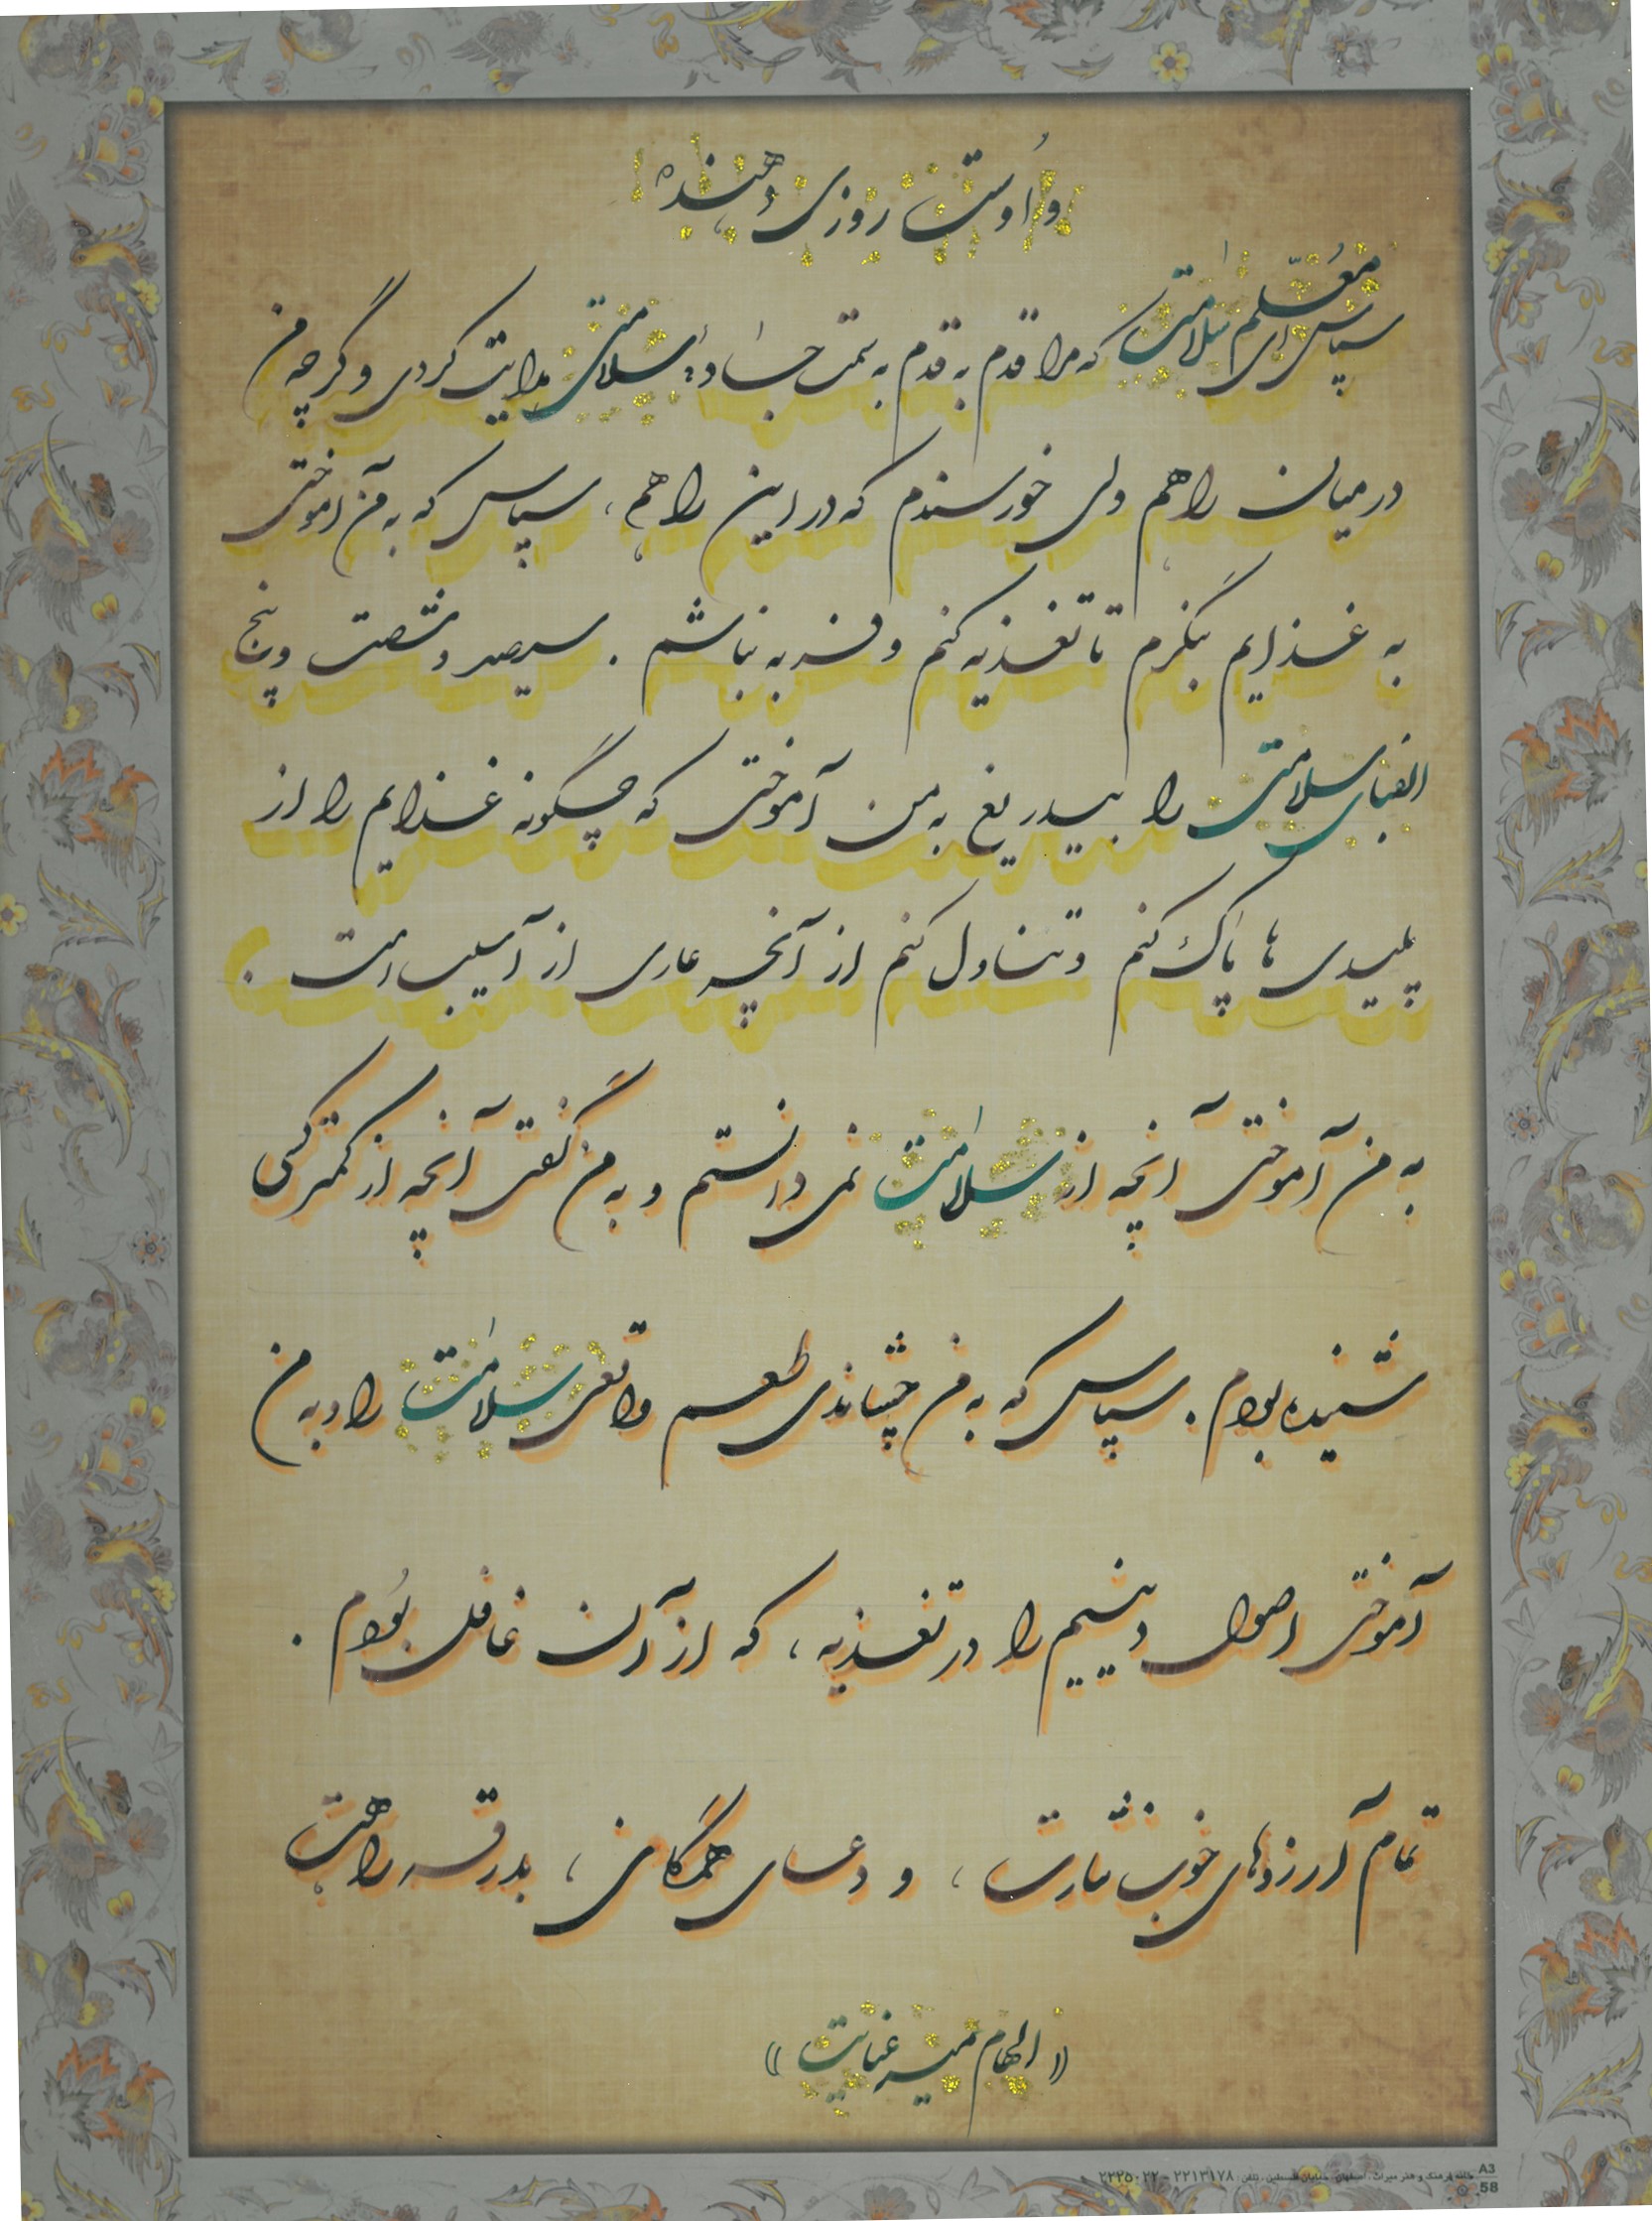 و اوست روزی دهنده
سپاس ای معلم سلامت که مرا قدم به قدم به سمت جاده سلامتی هدایت کردی و گرچه من
در میان راهم ولی خورسندم که در این راهم ، سپاس که به من آموختی
به غذایم بنگرم تا تغذیه کنم و فربه نباشم . سیصد و شصت و پنج
الفبای سلامتی را بیدریغ به من آموختی که چگونه غذایم را از
پلیدی ها پاک کنم و تناول کنم از آنچه عاری از آسیب است .
به من آموختی آنچه از سلامت نمی دانستم و به من گفتی آنچه از کمتر کسی
شنیده بودم . سپاس که به من چشاندی طعم واقعی سلامت را و به من
آموختی اصول دینیم را در تغذیه ، که از آن غافل بودم .
تمام آرزوهای خوب نثارت ، و دعای همگانی ، بدرقه راهت
(( الهام میر عنایت ))
A3 خانه فرهنگ و هنر میراث - اصفهان - خیابان فلسطین - تلفن : ۲۲۱۳۱۷۸ - ۲۲۲۵۰۲۲
58